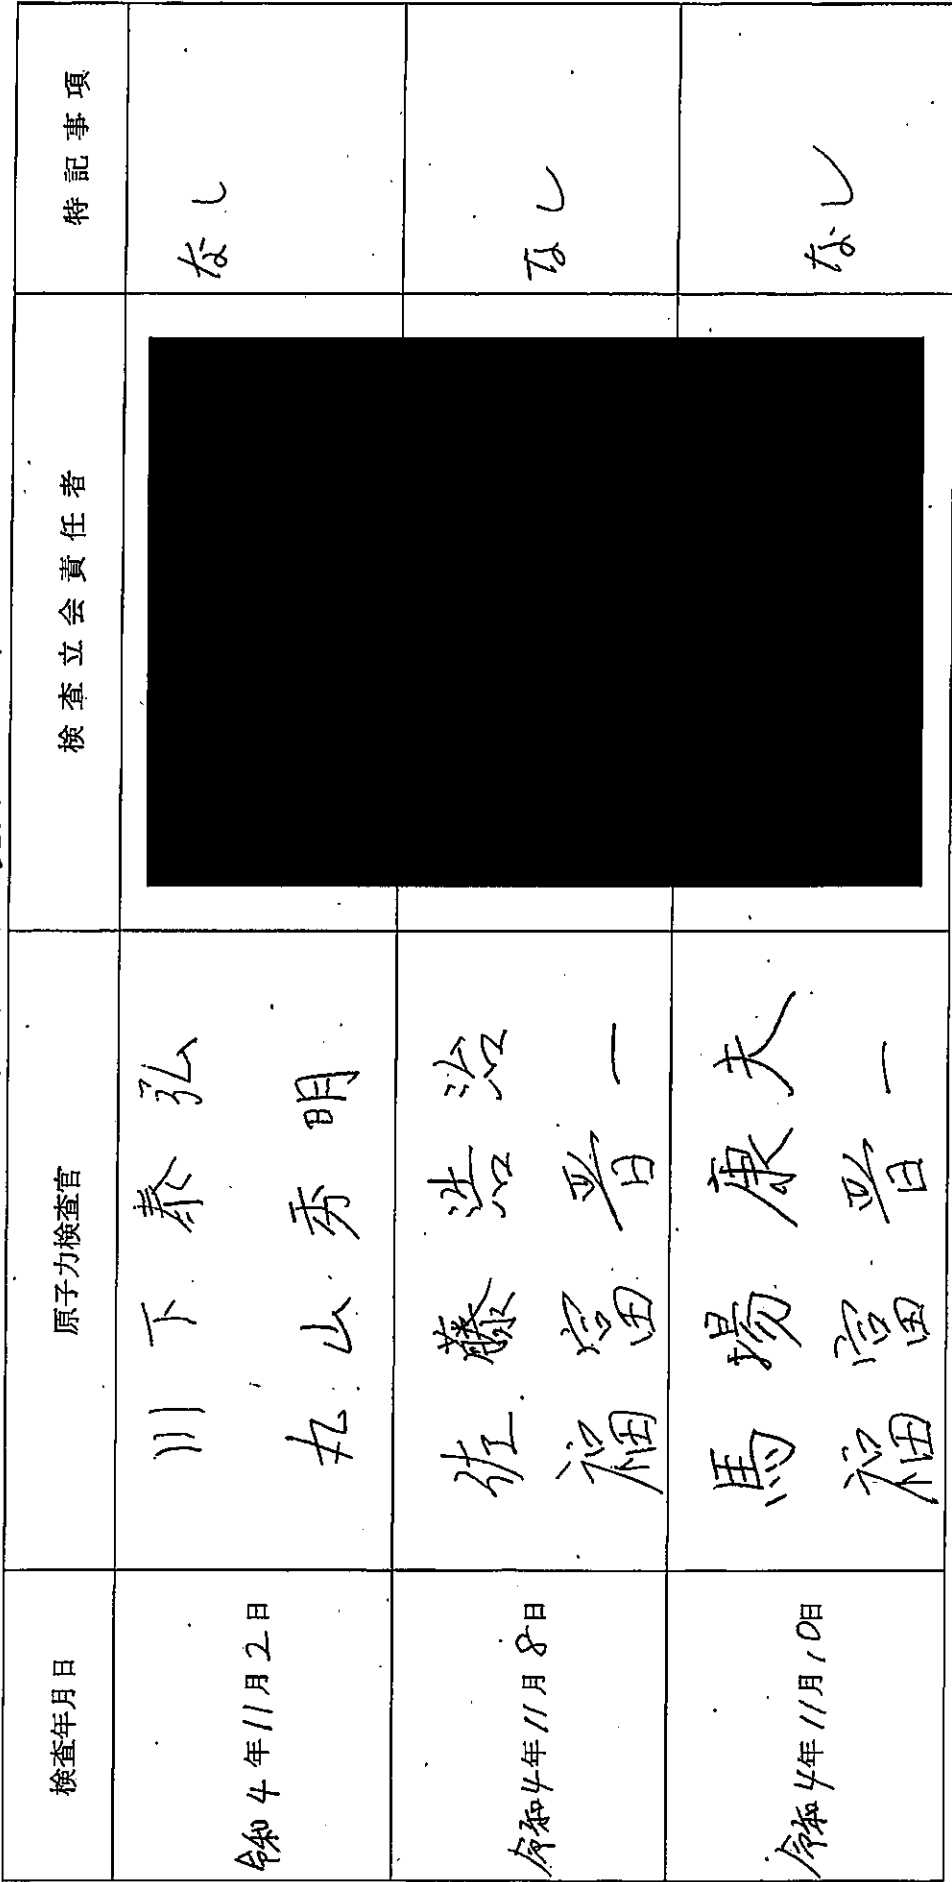 検査年月日
原子力検査官
検査立会責任者
特記事項
令和4年11月2日
川下泰弘
丸山秀明
なし
令和4年11月8日
佐藤浩治
福富晋一
なし
令和4年11月10日
馬場康夫
福富晋一
なし